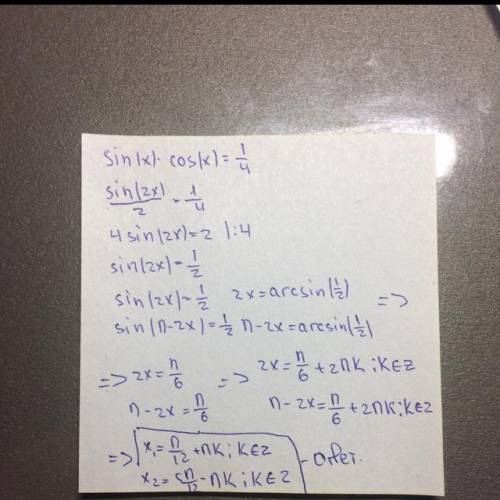 sin(x)· cos(x)= 1/4
sin(2x)/2 = 1/4
4 sin(2x)=2 |:4
sin(2x)= 1/2
sin(2x)= 1/2 2x=arcsin(1/2) =>
sin(π-2x)= 1/2 π-2x=arcsin(1/2)
=> 2x= π/6 => 2x= π/6 + 2πK; K∈Z
π-2x= π/6 π-2x= π/6 +2πK; K∈Z
=> x₁= π/12 +πK; K∈Z - Ответ.
x₂= 5π/12 - πK; K∈Z